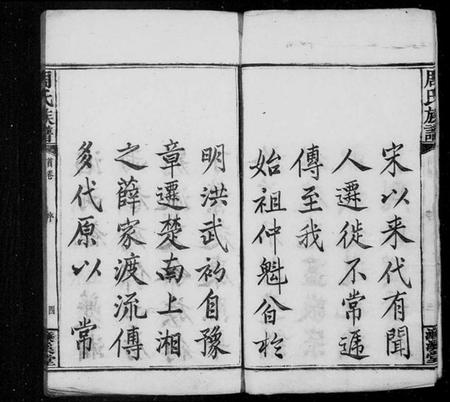 周氏族譜
宋以来代有聞
人遷徙不常逓
傳至我
始祖仲魁翁於
明洪武初自豫
章遷楚南上湘
之薛家渡流傳
多代原以常
周氏族譜
首卷
序
四